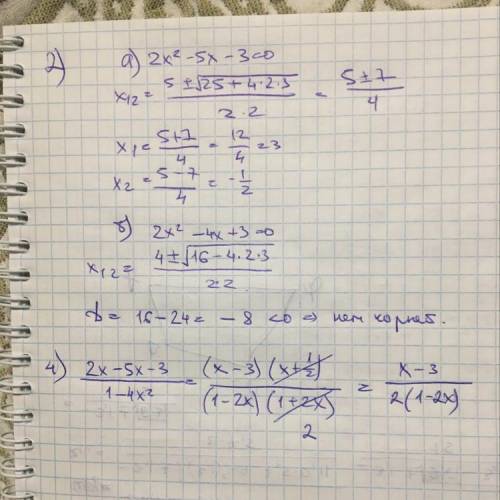 2) а) 2x² - 5x - 3 = 0
x₁₂ = (5 ± √(25 + 4·2·3)) / (2·2) = (5 ± 7) / 4
x₁ = (5+7) / 4 = 12/4 = 3
x₂ = (5-7) / 4 = -1/2
б) 2x² - 4x + 3 = 0
x₁₂ = (4 ± √(16 - 4·2·3)) / (2·2)
D = 16 - 24 = - 8 < 0 => нет корней.
4) (2x - 5x - 3) / (1 - 4x²) = ((x - 3)(x + 1/2)) / ((1 - 2x)(1 + 2x)) = (x - 3) / (2(1 - 2x))
2